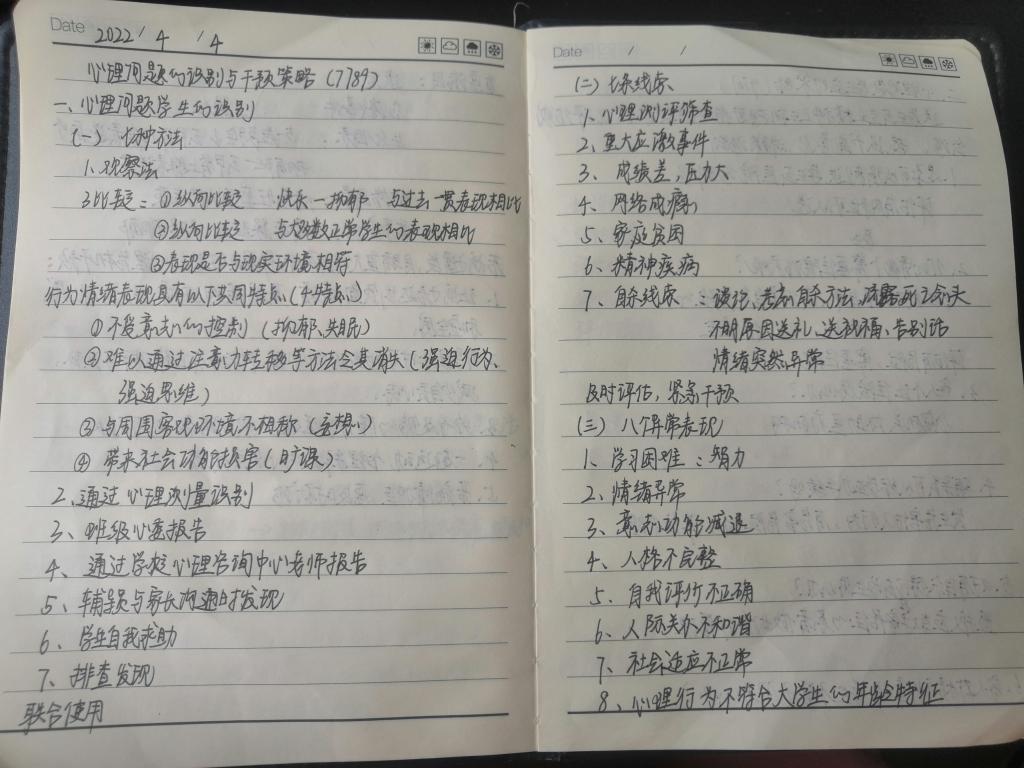 Date 2022 / 4 / 4
心理问题的识别与干预策略(7789)
一、心理问题学生的识别
(一) 七种方法
1.观察法
3比较:①纵向比较 快乐—抑郁 与过去一贯表现相比
②纵向比较 与大多数正常学生的表现相比
③表现是否与现实环境相符
行为情绪表现具有以下共同特点(4特点)
①不受意志的控制 (抑郁、失眠)
②难以通过注意力转移等方法令其消失(强迫行为、
强迫思维)
③与周围客观环境不相称(妄想)
④ 带来社会功能损害(旷课)
2、通过心理测量识别
3、班级心委报告
4、通过学校心理咨询中心老师报告
5、辅导员与家长沟通时发现
6、学生自我求助
7、排查发现
联合使用
Date / /
(二) 七条线索
1、心理测评筛查
2、重大应激事件
3、成绩差,压力大
4、网络成瘾
5、家庭贫困
6、精神疾病
7、自杀线索:谈论、考虑自杀方法,流露死亡念头
不明原因送礼、送祝福、告别话
情绪突然异常
及时评估,紧急干预
(三) 八个异常表现
1、学习困难:智力
2、情绪异常
3、意志功能减退
4、人格不完整
5、自我评价不正确
6、人际关系不和谐
7、社会适应不正常
8、心理行为不符合大学生的年龄特征